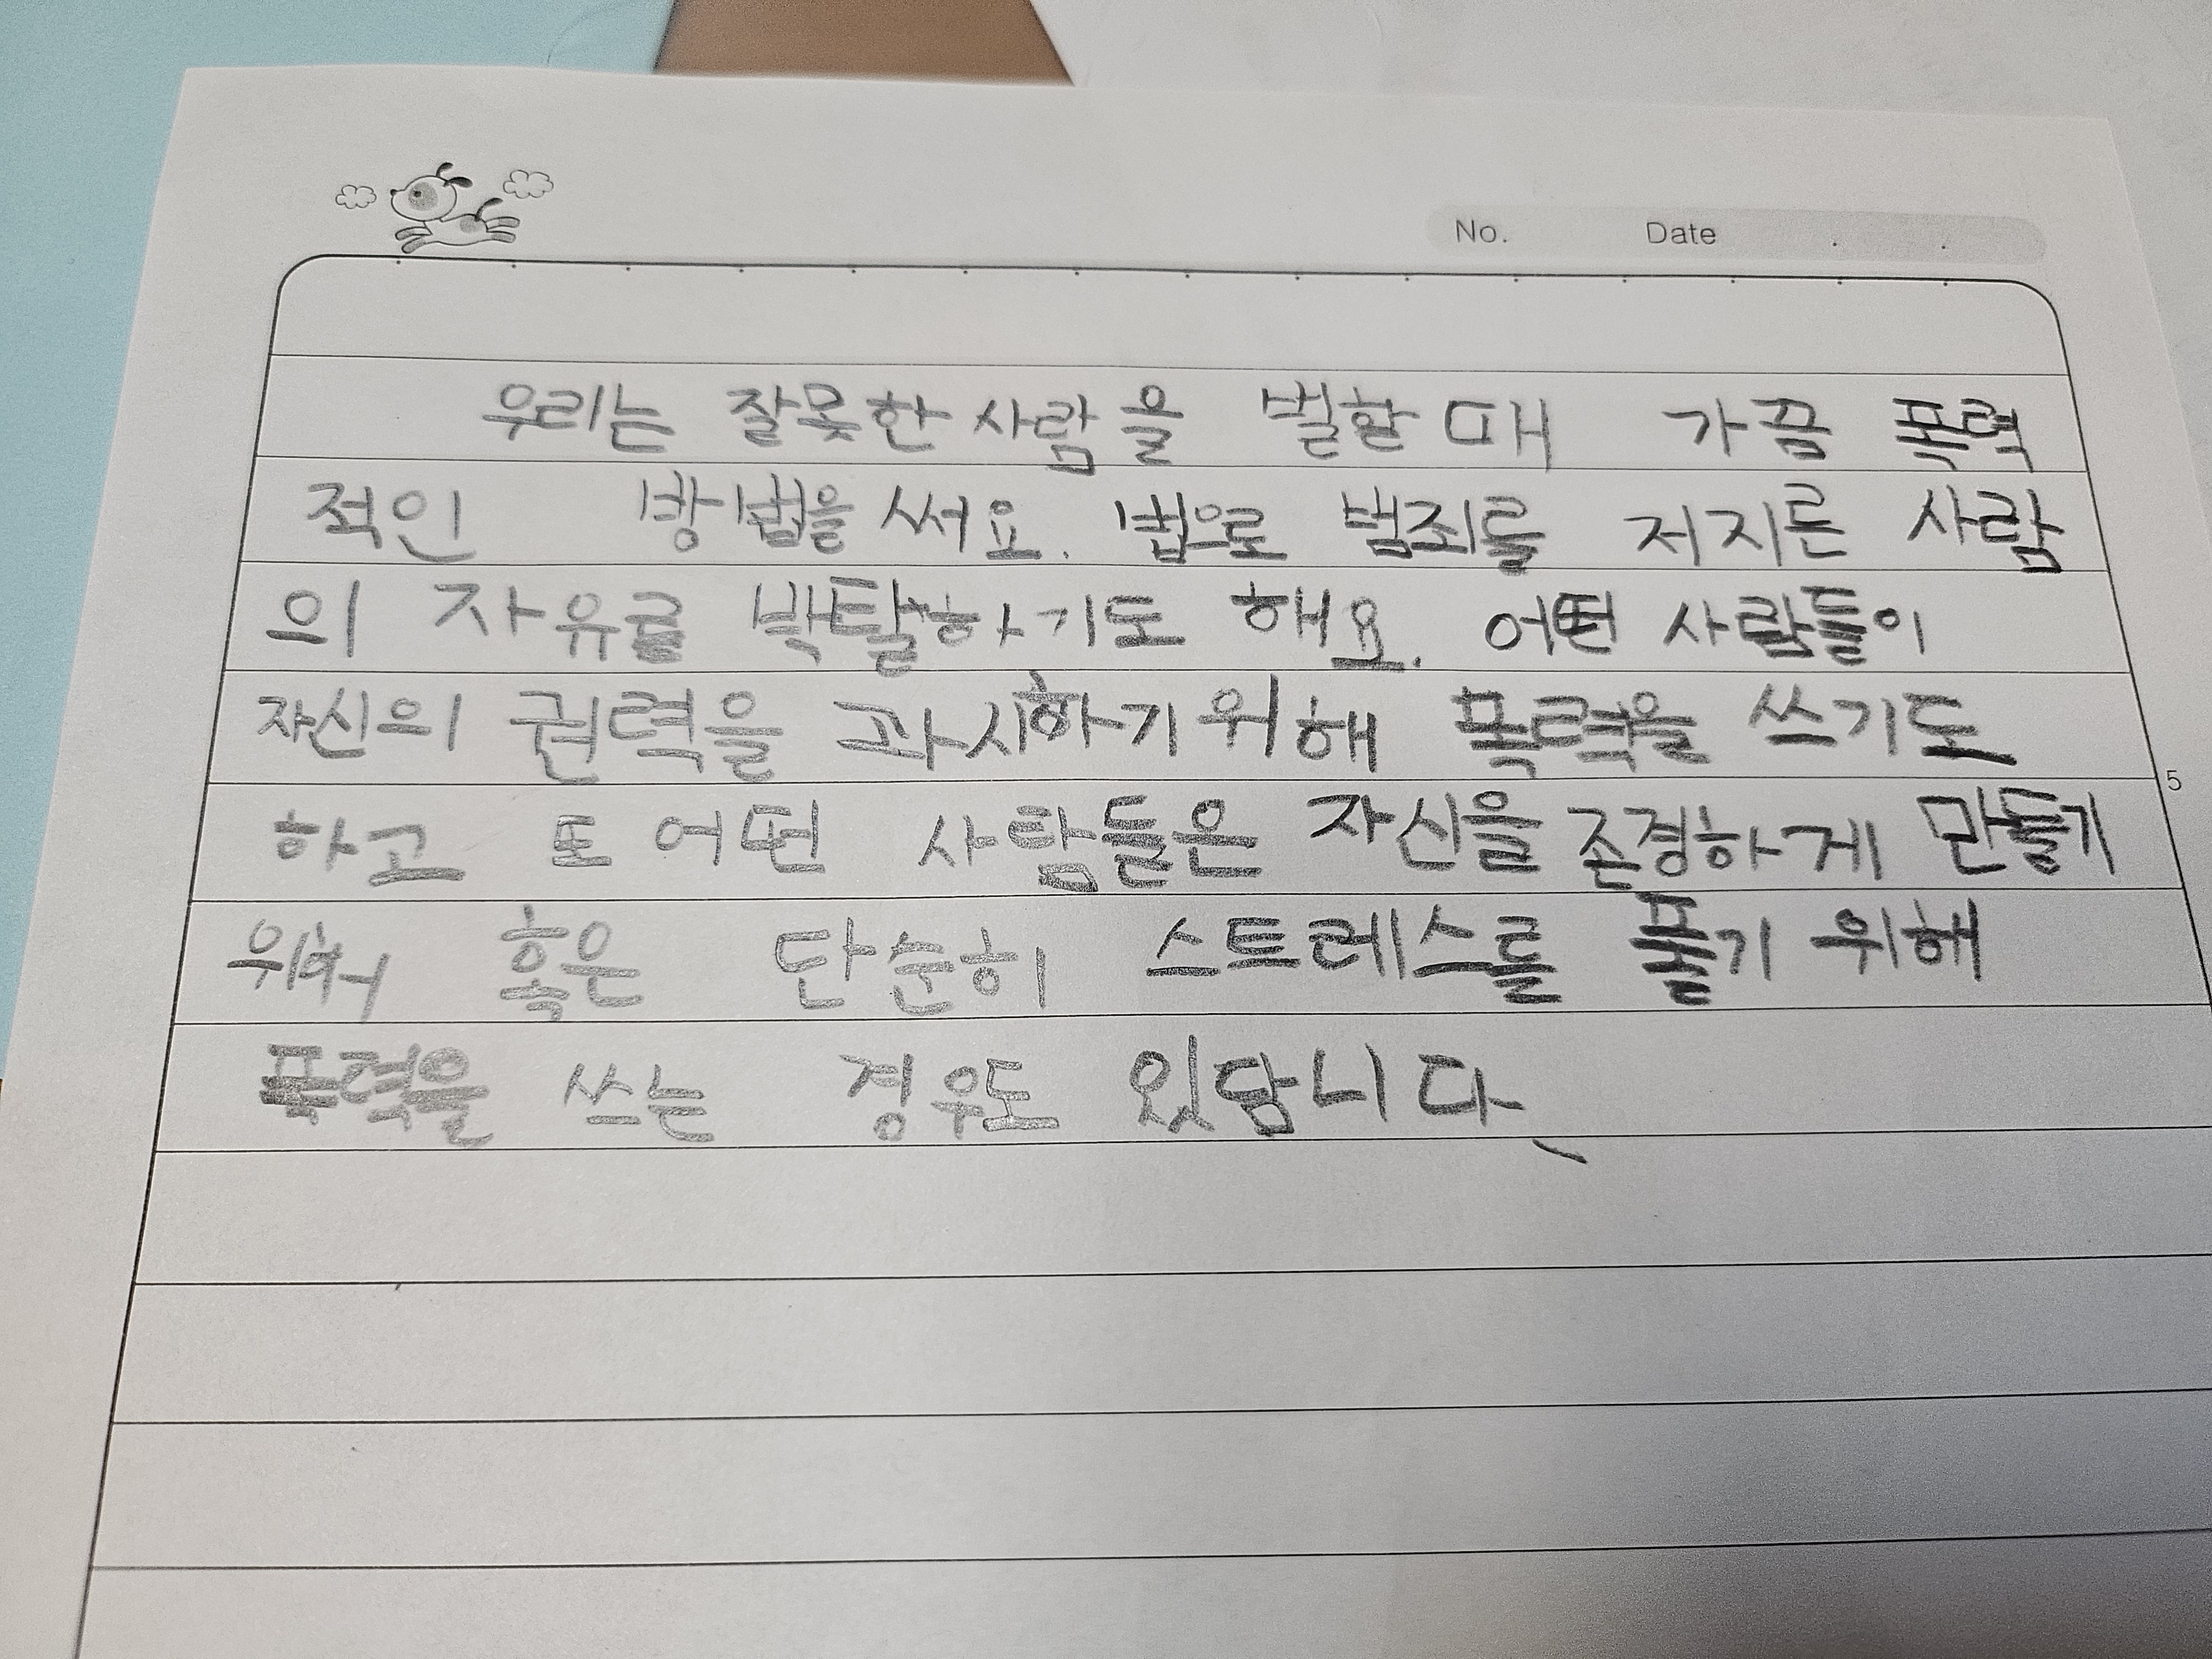 No. Date . .
우리는 잘못한 사람을 벌할 때 가끔 폭력
적인 방법을 써요. 법으로 범죄를 저지른 사람
의 자유를 박탈하기도 해요. 어떤 사람들이
자신의 권력을 과시하기 위해 폭력을 쓰기도
5
하고 또 어떤 사람들은 자신을 존경하게 만들기
위해 혹은 단순히 스트레스를 풀기 위해
폭력을 쓰는 경우도 있답니다.